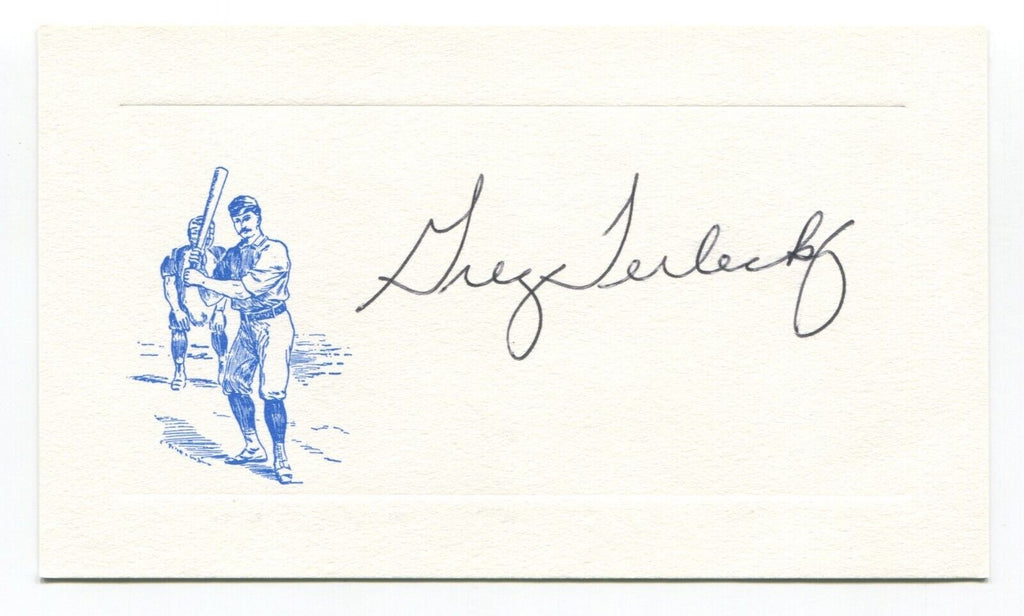 Greg Terlecky